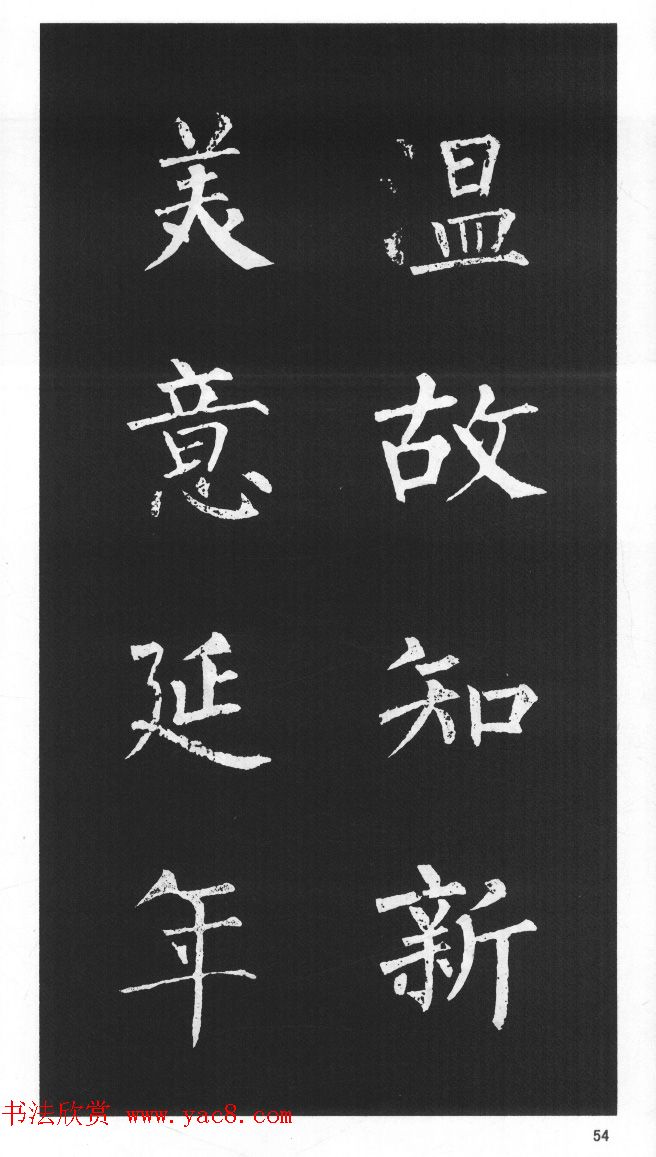 温故知新
美意延年
书法欣赏 www.yac8.com
54